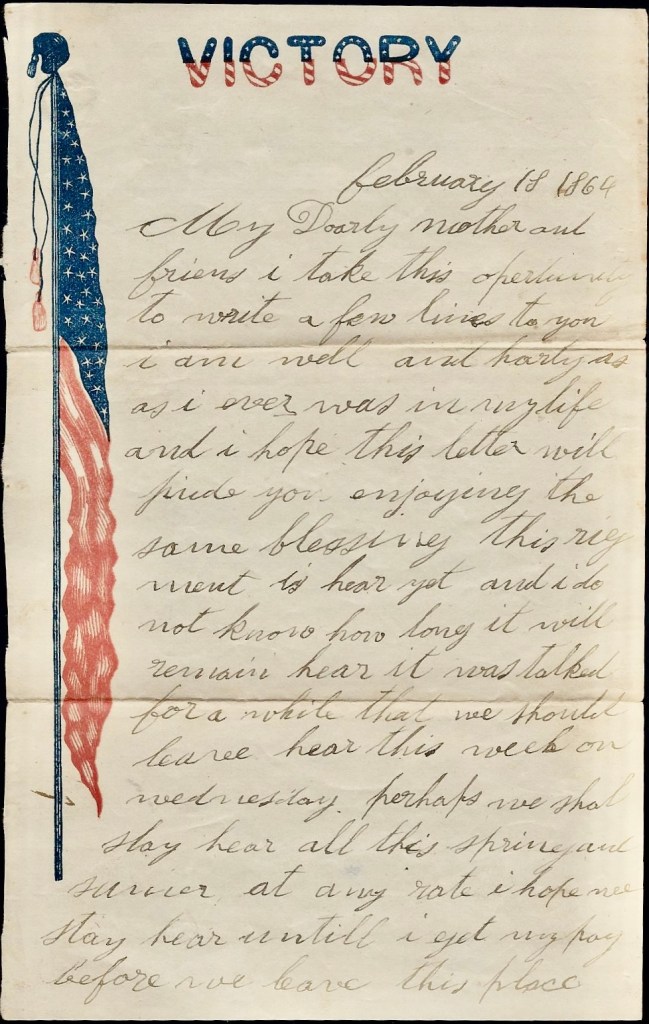 VICTORY
february 18 1864
My Dearly mother and
friens i take this opertunity
to write a few lines to you
i am well and harty as
as i ever was in my life
and i hope this letter will
finde you enjoying the
same blessing this rig
ment is hear yet and i do
not know how long it will
remain hear it was talked
for a while that we should
leave hear this week on
wednesday. perhaps we shal
stay hear all this spring and
at any rate i hope we
stay hear untill i get my pay
before we leave this place